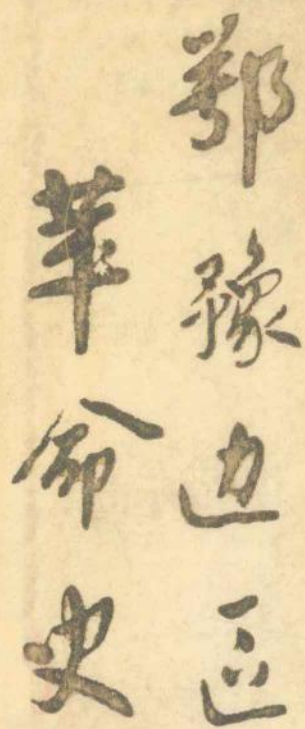 鄂豫边区
革命史